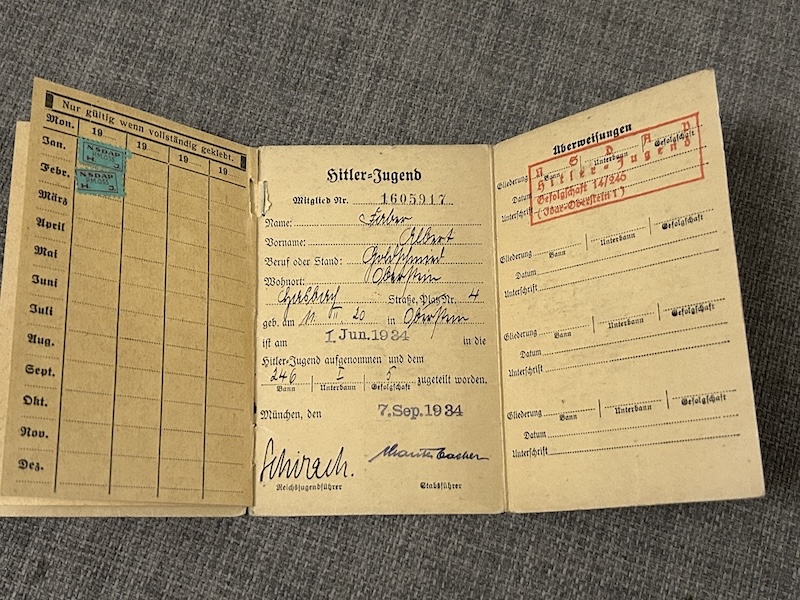 Nur gültig wenn vollständig geklebt.
Mon. 19 19 19 19
Jan.
NSDAP
H J
Febr.
NSDAP
H J
März
April
Mai
Juni
Juli
Aug.
Sept.
Okt.
Nov.
Dez.
Hitler-Jugend
Mitglied Nr. 1605917
Name: Färber
Vorname: Albert
Beruf oder Stand: Goldschmied
Wohnort: Oberstein
Straße, Platz Nr. 4
geb. am 11. 20 in Oberstein
ist am 1 Jun. 1934 in die
Hitler-Jugend aufgenommen und dem
246 I 5 zugeteilt worden.
Bann Unterbann Gefolgschaft
München, den 7. Sep. 1934
Schirach.
Reichsjugendführer Stabsführer
Überweisungen
N S D A P
Hitler-Jugend
Gefolgschaft 14/245
(Idar-Oberstein 1)
Gliederung Bann Unterbann Gefolgschaft
Datum
Unterschrift
Gliederung Bann Unterbann Gefolgschaft
Datum
Unterschrift
Gliederung Bann Unterbann Gefolgschaft
Datum
Unterschrift
Gliederung Bann Unterbann Gefolgschaft
Datum
Unterschrift